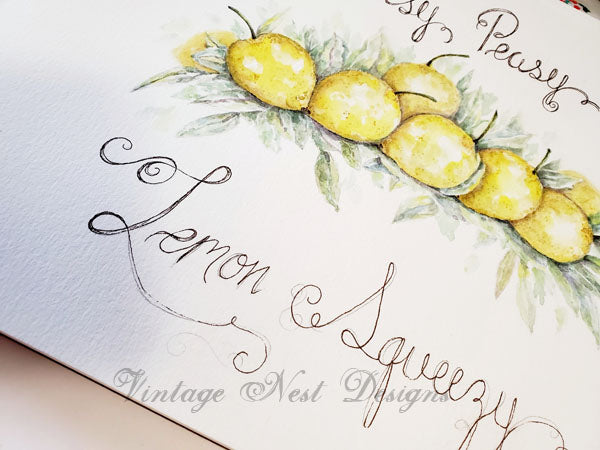 Peasy
Lemon Squeezy
Vintage Nest Designs